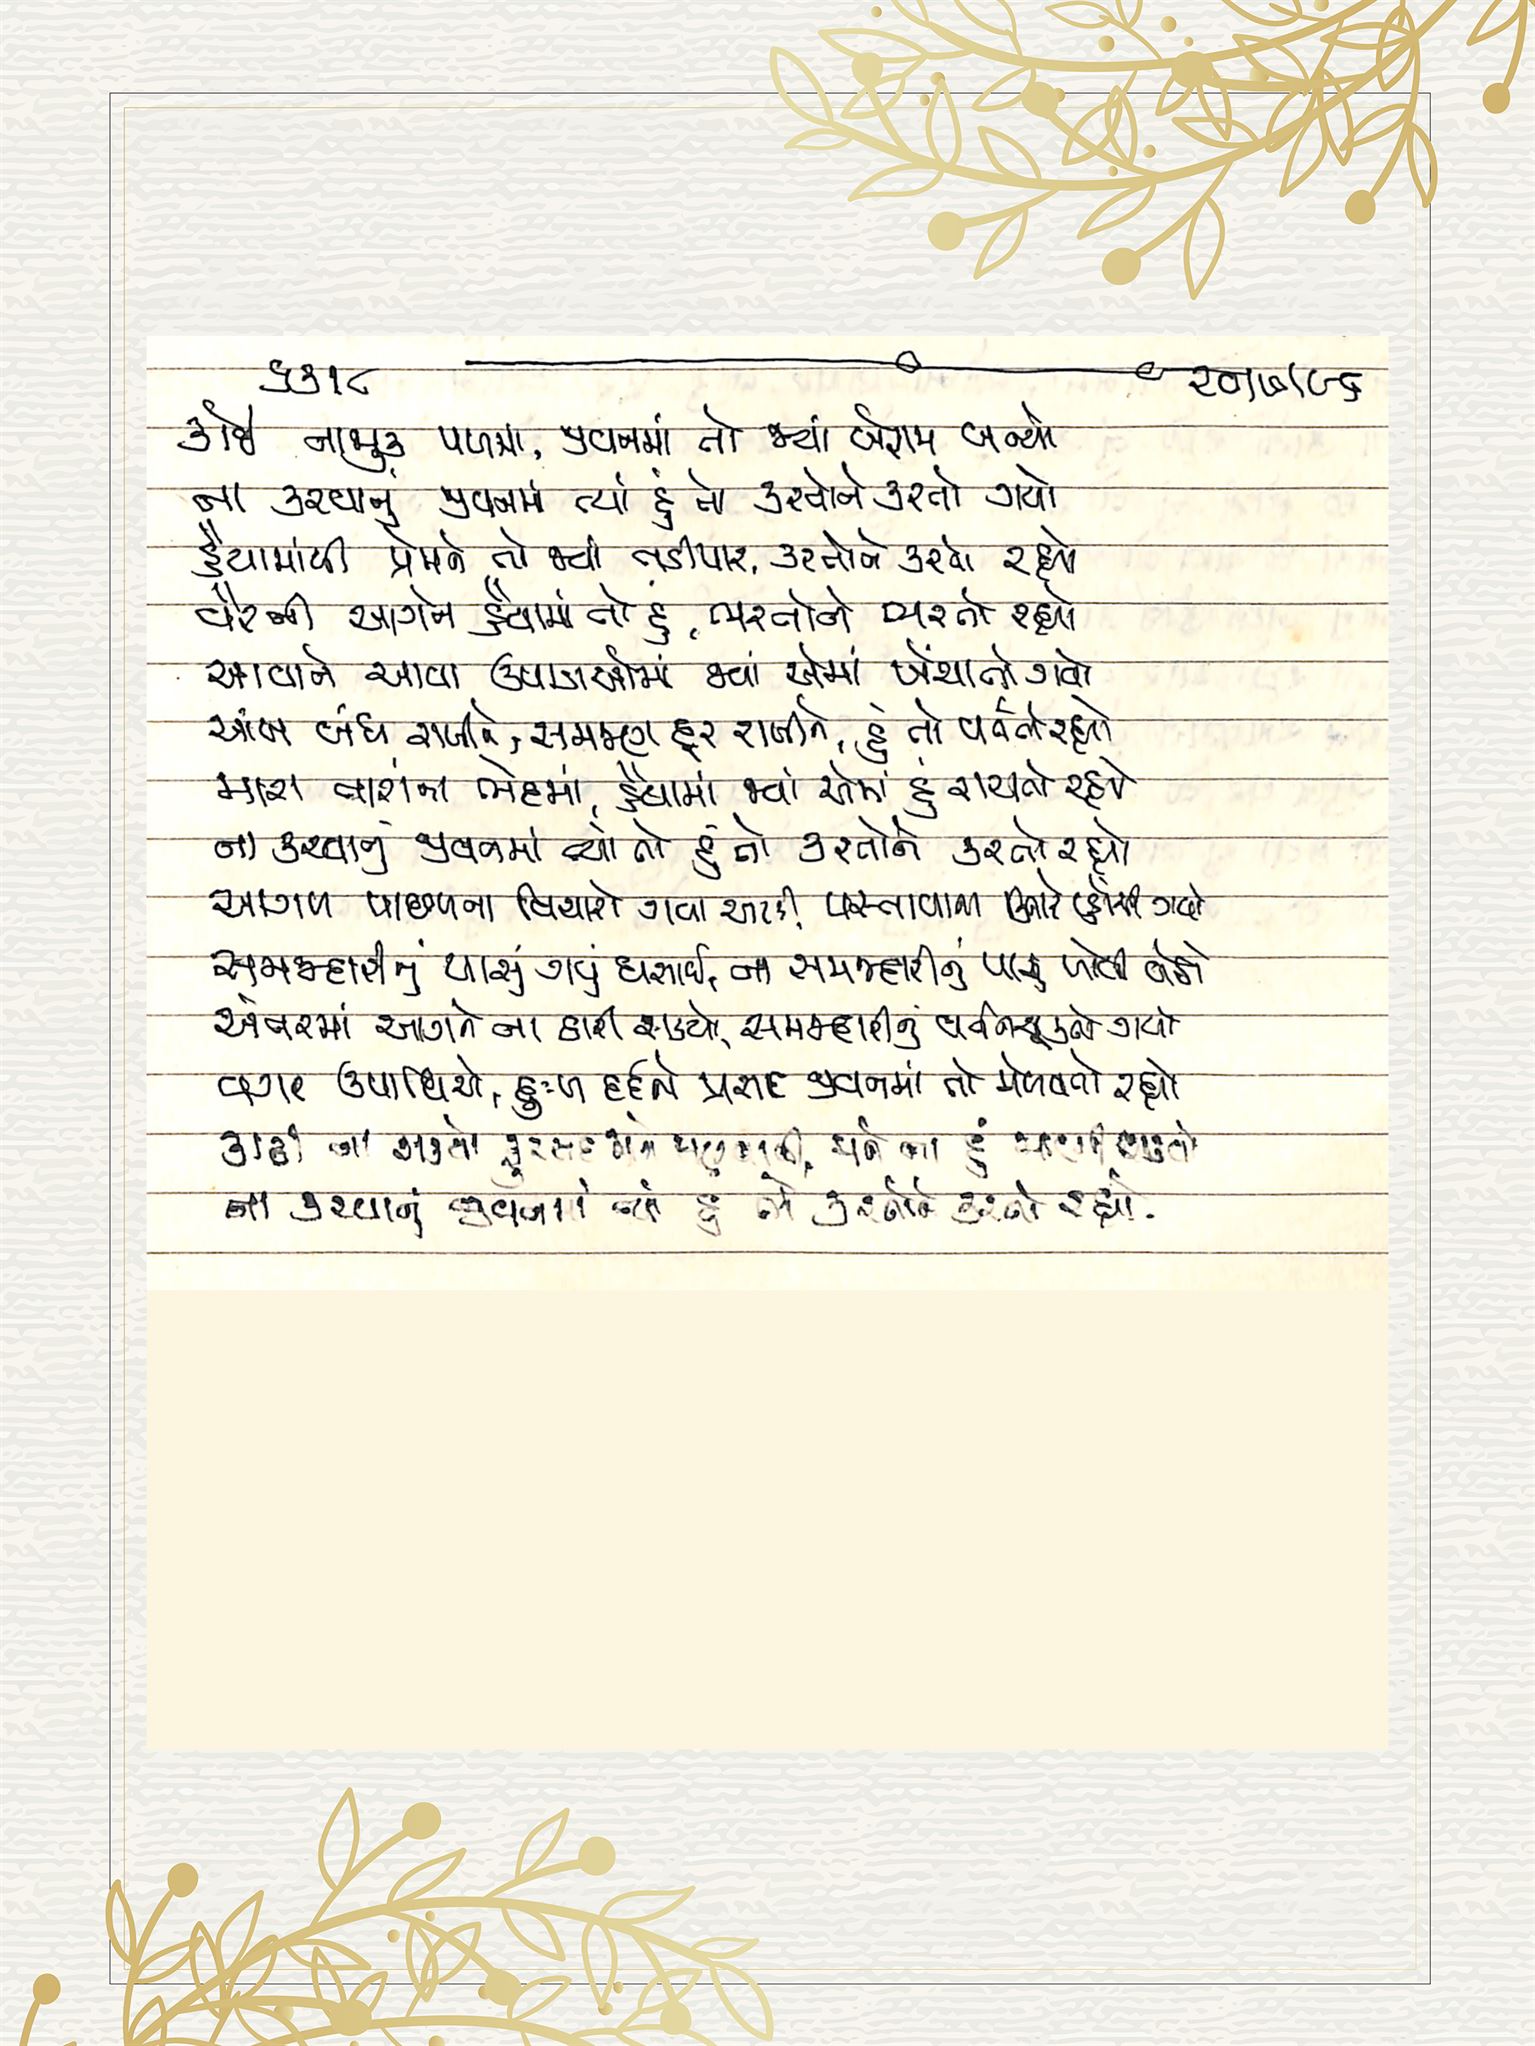 ૬૩૧૮ ૨૦/૭/૯૬
કોઈ નાજુક પળમાં, જીવનમાં તો જ્યાં બેરામ બન્યો
ના કરવાનું જીવનમાં ત્યાં હું તો કરતોને કરતો ગયો
હૈયામાંથી પ્રેમને તો જ્યાં તડીપાર, કરતોને કરતો રહ્યો
વૈરની આગને હૈયામાં તો હું, ભરતોને ભરતો રહ્યો
આવાને આવા ઉપાડાઓમાં જ્યાં એમાં ખેંચાતો ગયો
આંખ બંધ રાખીને, સમજણ દૂર રાખીને, હું તો વર્તતો રહ્યો
મારા તારાંના ભેદમાં, હૈયામાં જ્યાં એમાં હું રાચતો રહ્યો
ના કરવાનું જીવનમાં ત્યાં તો હું તો કરતોને કરતો રહ્યો
આગળ પાછળના વિચારો ગયા અટકી, પસ્તાવાના
સમજદારીનું પાસું ગયું ઘસાઈ, ના સમજદારીનું પાસું ખોલી બેઠો
અંતરમાં આગને ના ઠારી શક્યો, સમજદારીનું વર્તન ચૂકતો ગયો
વગર ઉપાધિએ, દુઃખ દર્દને પ્રસાદ જીવનમાં તો મેળવતો રહ્યો
કાઢી ના શકતો ફુરસદ ના હું
ના કરવાનું જીવનમાં ત્યાં હું તો કરતોને કરતો રહ્યો.